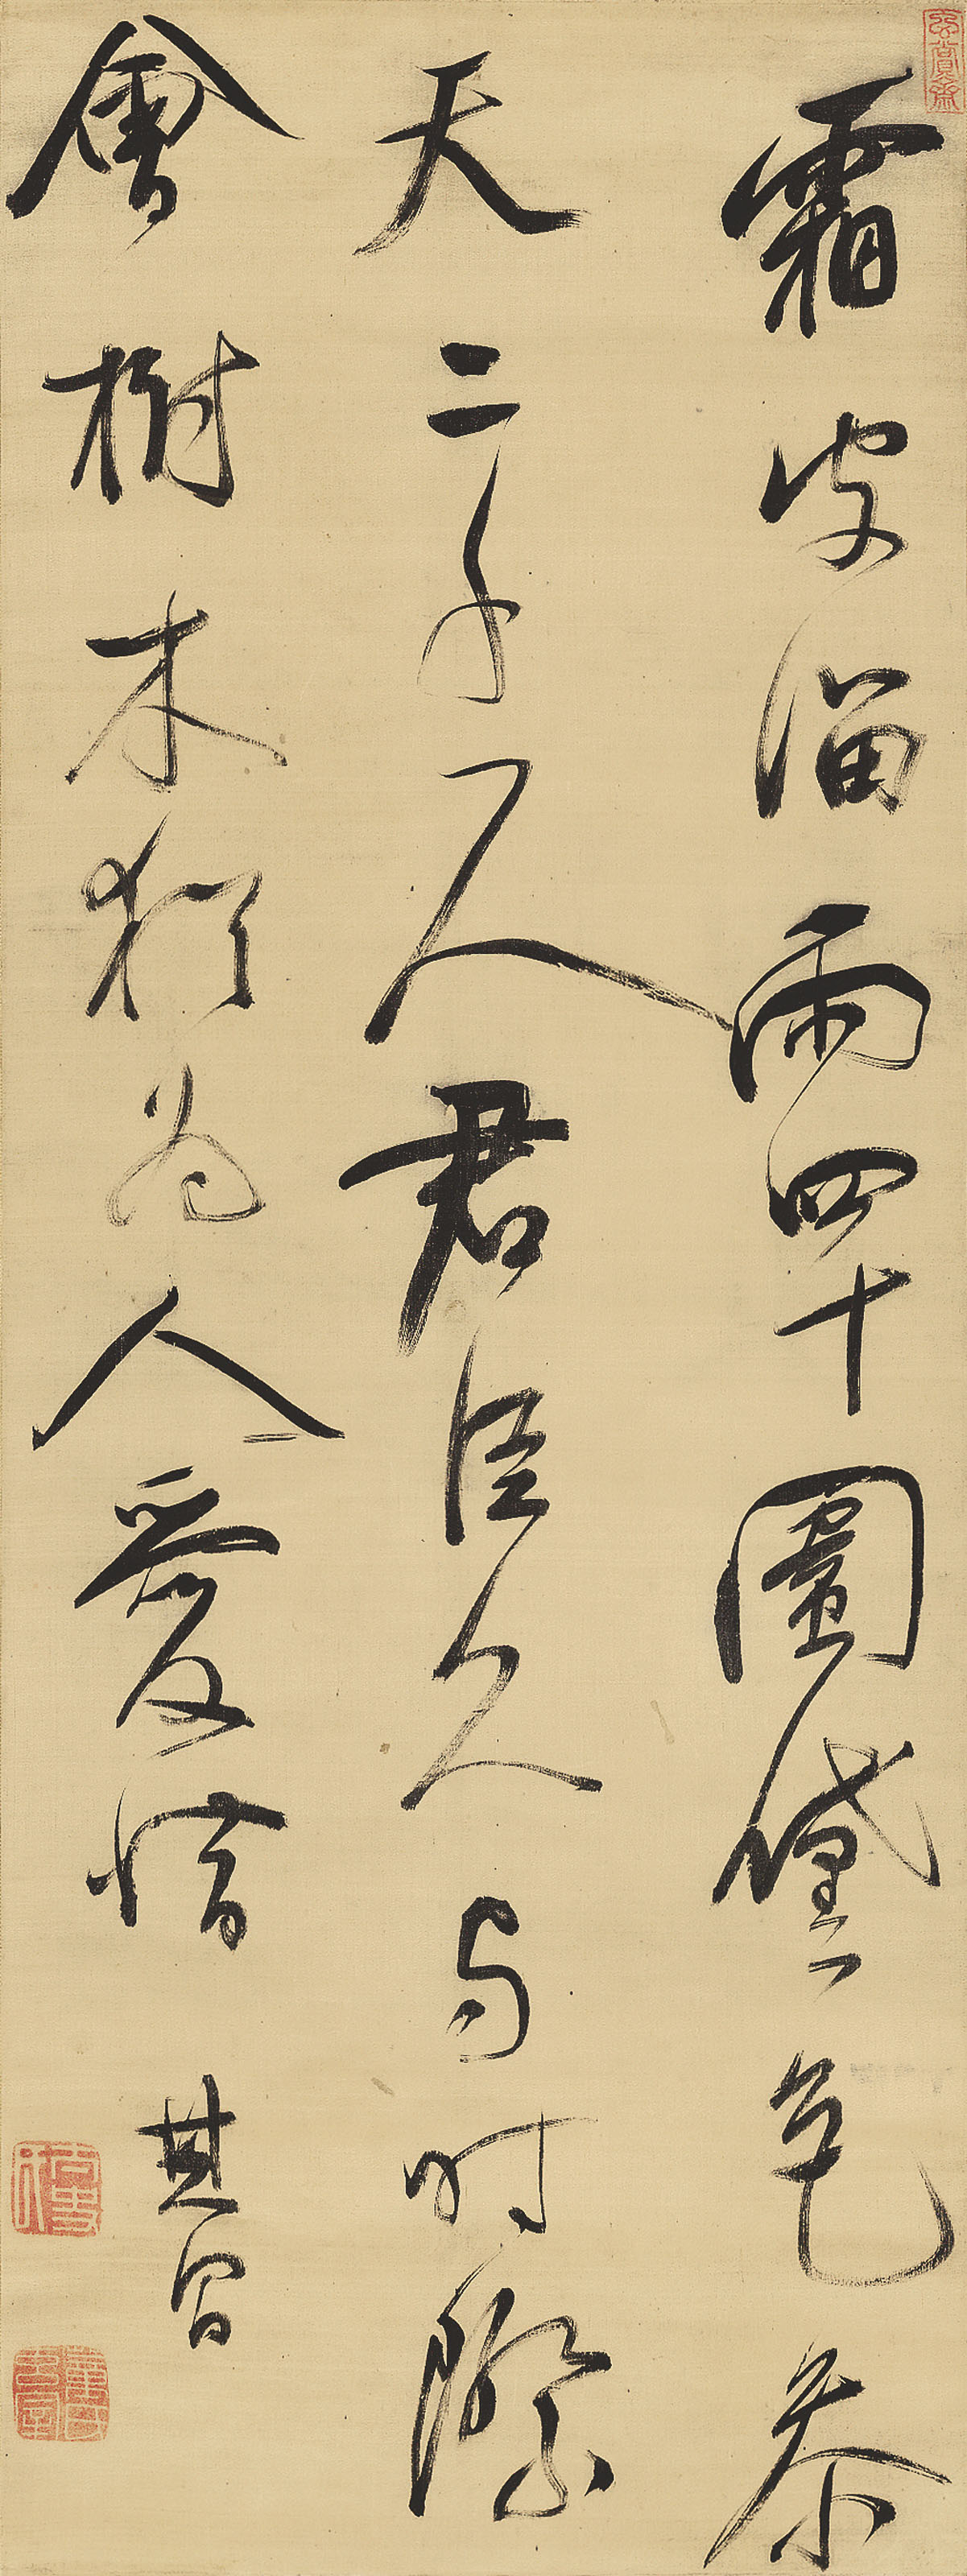 玄賞齋
霜皮溜雨四十圍黛色參
天二千尺君臣久與時際
會樹木猶為人愛惜
其昌